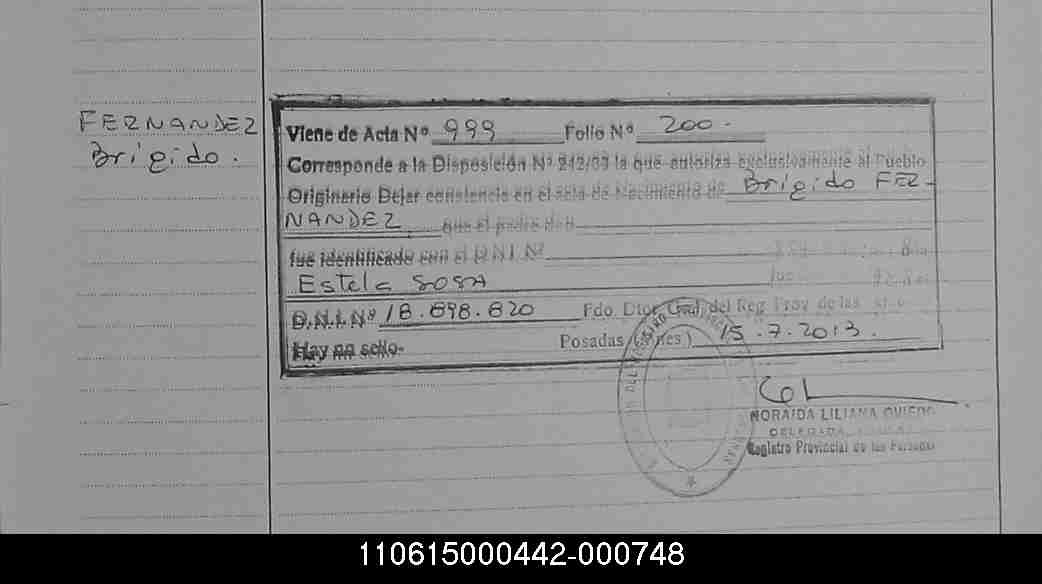 FERNANDEZ
Brígido.
Viene de Acta Nº 999 Folio Nº 200.
Corresponde a la Disposición Nº 242/03 la que autoriza exclusivamente al Pueblo
Originario Dejar constancia en el acta de Nacimiento de Brígido FER-
NANDEZ que el padre
fue identificado con el D.N.I. Nº
Estela SOSA
D.N.I. Nº 18.898.820 Fdo. Dtor. Gral. del Reg. Prov. de las
Hay un sello- Posadas (Mnes) 15.7.2013.
NORAIDA LILIANA OVIEDO
DELEGADA
Registro Provincial de las Personas
110615000442-000748